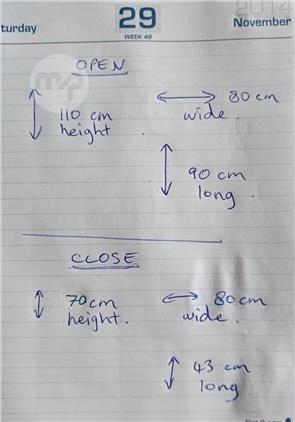 2014
turday 29 November
WEEK 48
OPEN
110 cm height
80 cm wide.
90 cm long.
CLOSE
70cm height.
80 cm wide.
43 cm long.